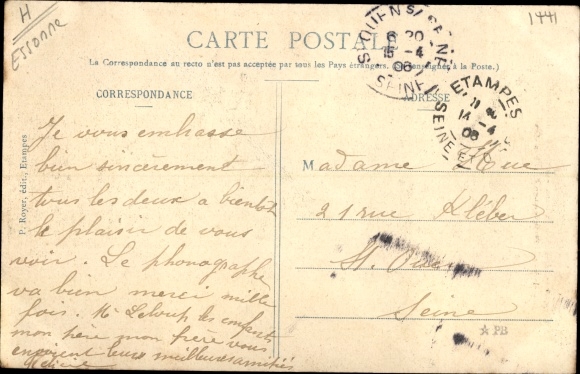 H
Essonne
1441
CARTE POSTALE
La Correspondance au recto n'est pas acceptée par tous les Pays étrangers. (Se renseigner à la Poste.)
CORRESPONDANCE
ADRESSE
ST OUEN S/ SEINE
15-4
06
SEINE
ETAMPES
14-4
06
SEINE ET
Je vous embrasse
bien sincèrement
tous les deux a bientot
le plaisir de vous
voir. Le phonographe
va bien merci mille
fois. Mr Leloup les enfants
mon père mon frère vous
envoient leurs meilleures amitiés
Madame
21 rue Kléber
St. Ouen
Seine
P. Royer, édit., Etampes
PB